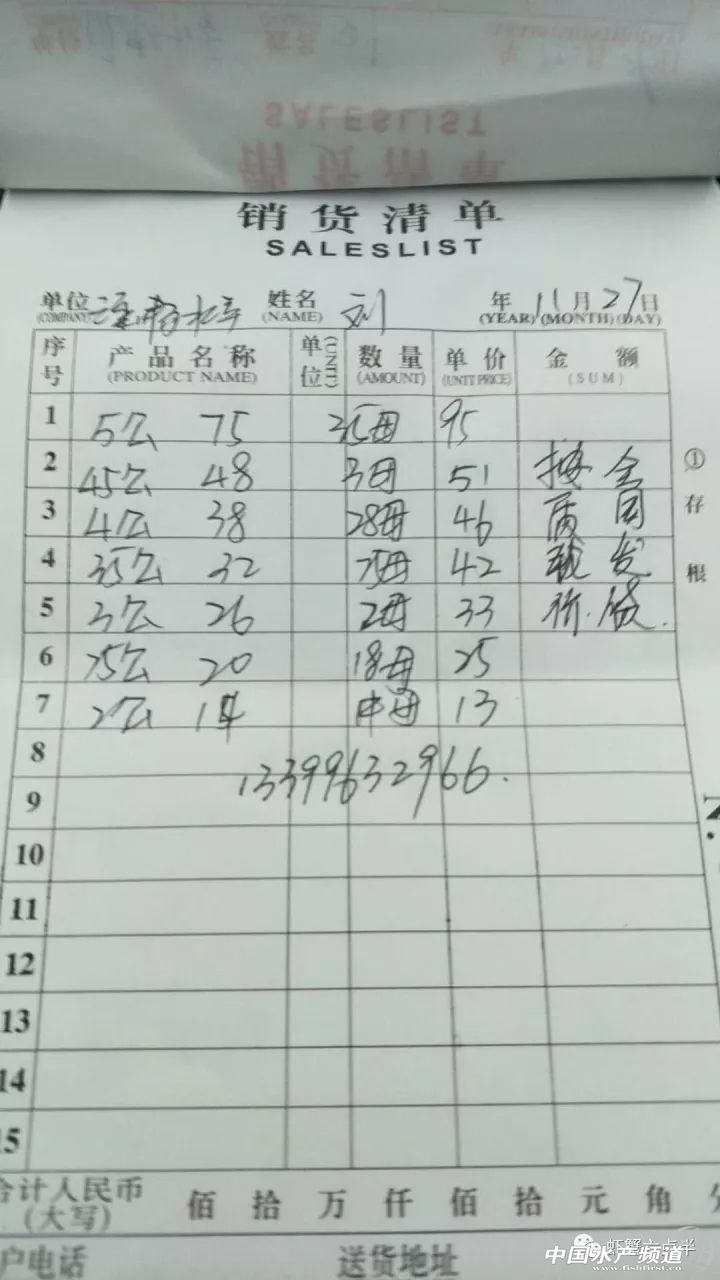 SALESLIST
销货清单
销货清单
SALESLIST
单位 姓名 刘 年 11月 27日
(COMPANY) (NAME) (YEAR) (MONTH) (DAY)
序号 产品名称 单位 数量 单价 金额
(PRODUCT NAME) (UNIT) (AMOUNT) (UNIT PRICE) (SUM)
1 5公 75 35母 95
2 45公 48 3母 51 接 全
3 4公 38 28母 46 国
4 35公 32 25母 42 发
5 3公 26 2母 33 价. 货.
6 25公 20 18母 25
7 2公 14 中母 13
8
13399632966.
9
10
11
12
13
14
15
①存根
合计人民币
(大写) 佰 拾 万 仟 佰 拾 元 角 分
户电话 送货地址
虾蟹六点半
中国水产频道
www.fishfirst.cn